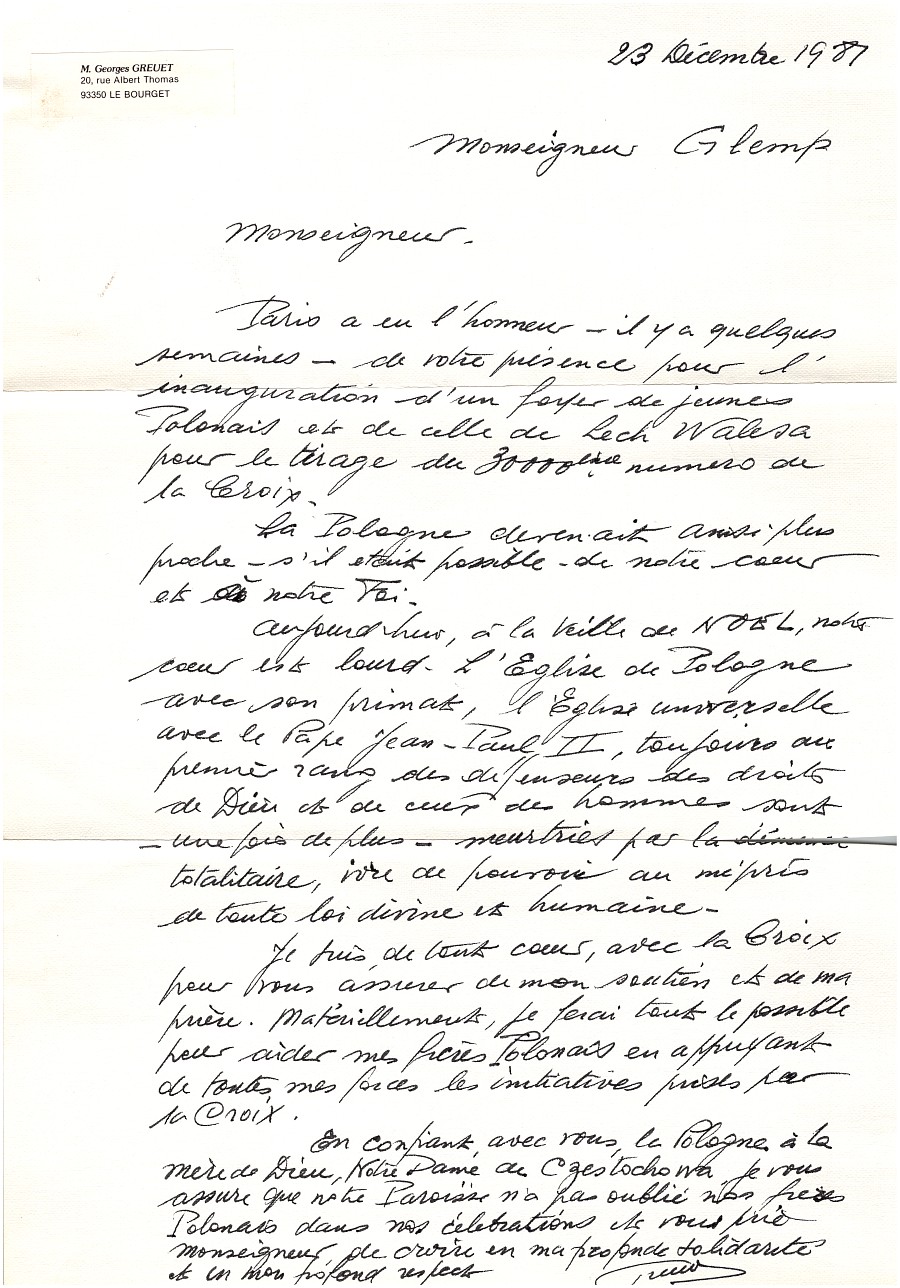 M. Georges GREUET
20, rue Albert Thomas
93350 LE BOURGET
23 Décembre 1981
Monseigneur Glemp
Monseigneur.
Paris a eu l'honneur – il y a quelques
semaines – de votre présence pour l'
inauguration d'un foyer de jeunes
Polonais et de celle de Lech Walesa
pour le tirage du 30000ième numero de
la Croix.
La Pologne devenait ainsi plus
proche – s'il etait possible – de notre coeur
et de notre Foi.
Aujourd'hui, à la veille de NOEL, notre
coeur est lourd. L'Eglise de Pologne
avec son primat, l'Eglise universelle
avec le Pape Jean-Paul II, toujours au
premier rang des defenseurs des droits
de Dieu et de ceux des hommes sont
– une fois de plus – meurtries par la démence
totalitaire, ivre de pouvoir au mépris
de toute loi divine et humaine –
Je suis, de tout coeur, avec la Croix
pour vous assurer de mon soutien et de ma
prière. Matériellement, je ferai tout le possible
pour aider mes frères Polonais en appuyant
de toutes mes forces les initiatives prises par
la Croix.
En confiant, avec vous, la Pologne à la
mère de Dieu, Notre Dame de Czestochowa je vous
assure que notre Paroisse n'a pas oublié nos freres
Polonais dans nos célébrations et vous prie
Monseigneur de croire en ma profonde solidarité
et en mon profond respect